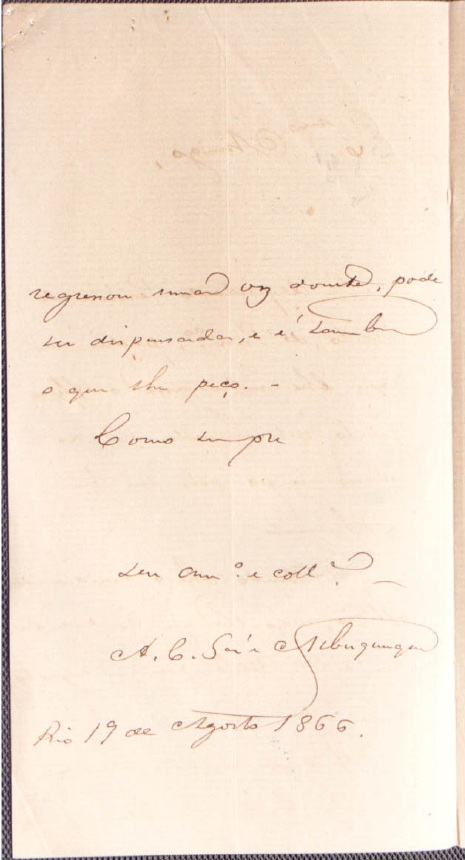 regressou senão os doentes, pode
ser dispensados, e é tambem
o que lhe peço. -
Como sempre
seu am.º e coll.ª
A. C. Sá e Albuquerque
Rio 19 de Agosto 1866.